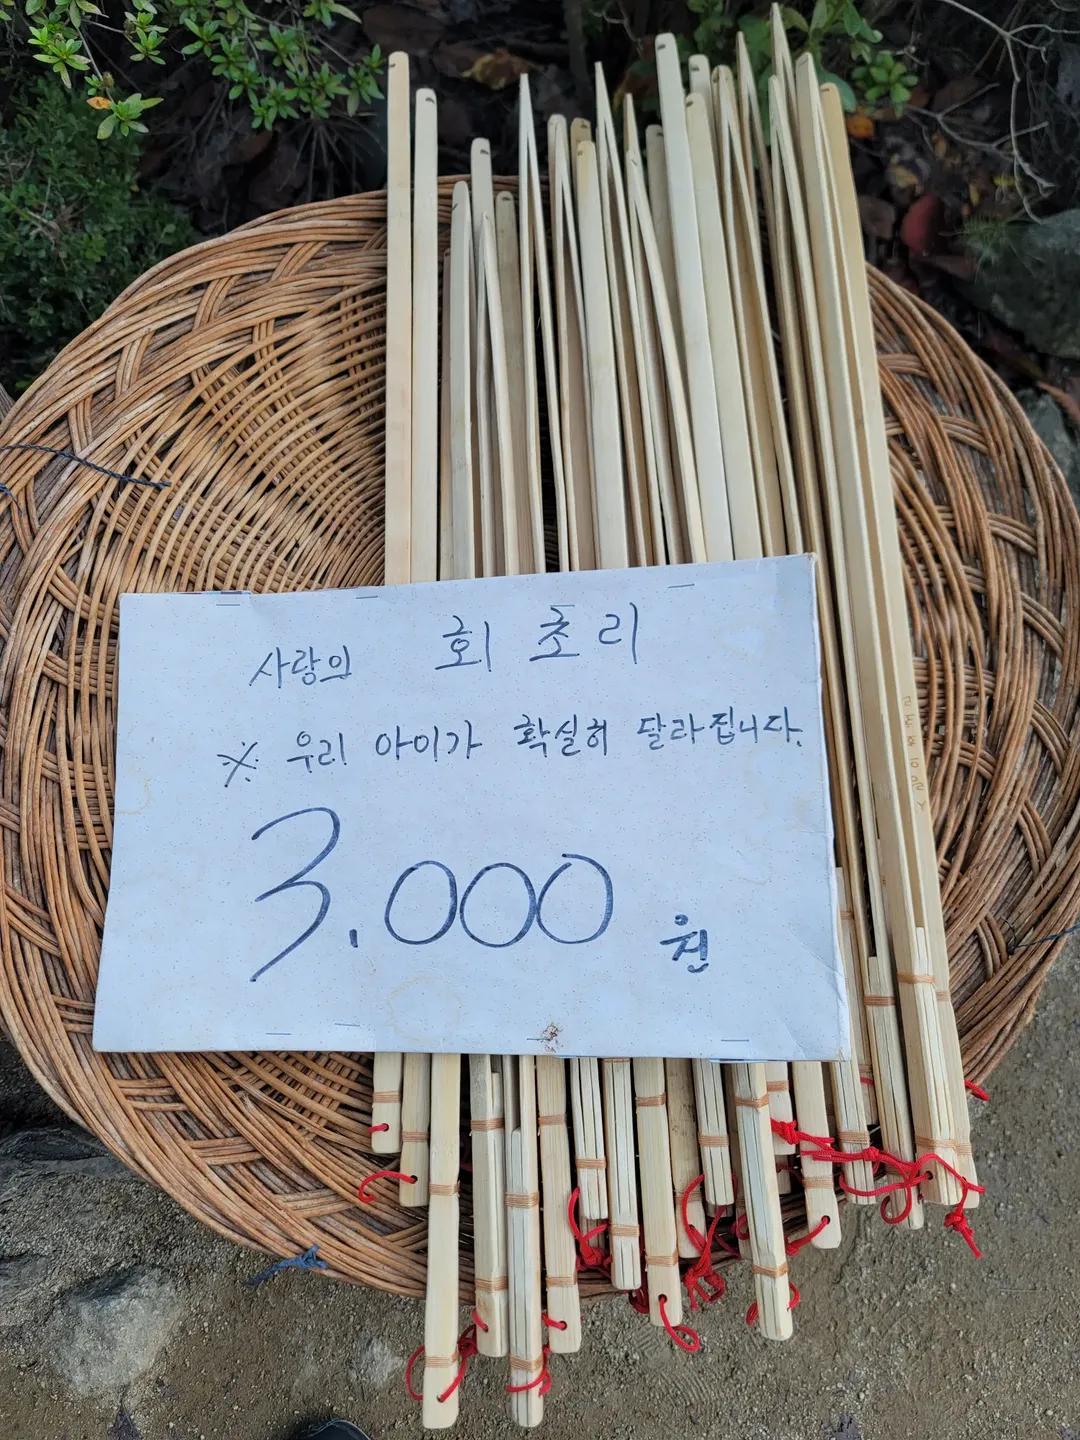 사랑의 회초리
※ 우리 아이가 확실히 달라집니다.
3.000 원